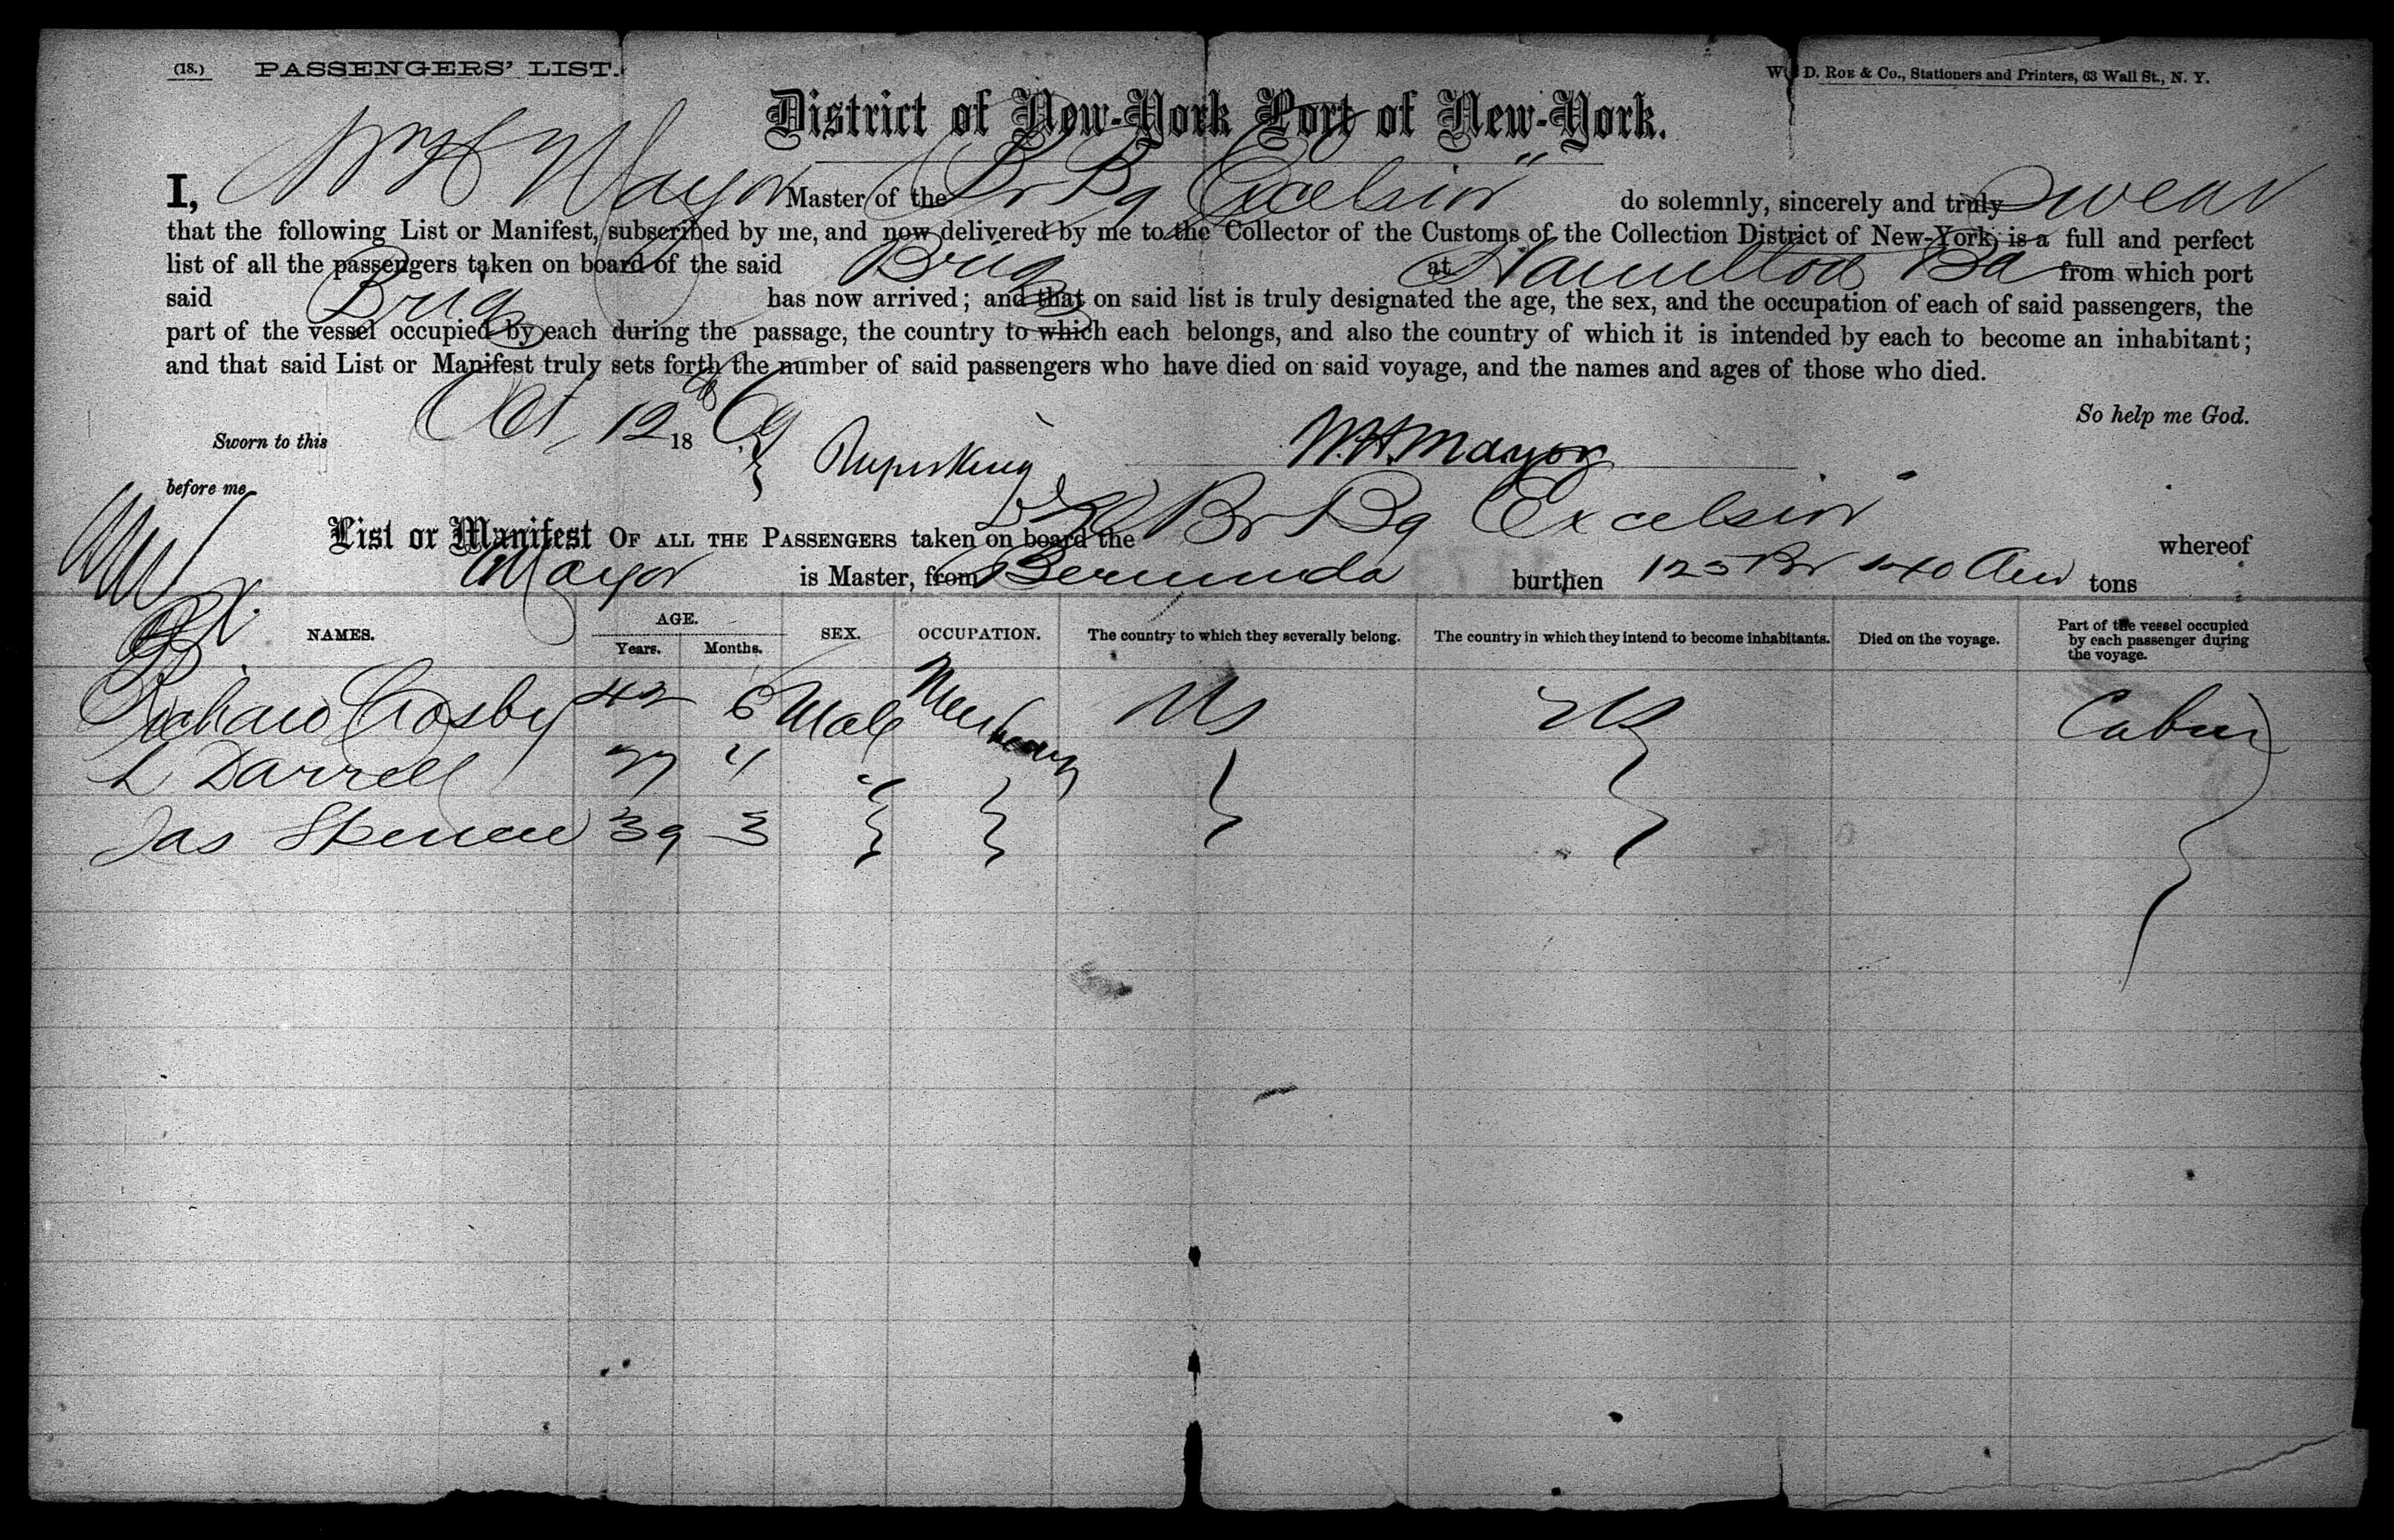 (18.) PASSENGERS' LIST. D. ROE & Co., Stationers and Printers, 63 Wall St., N. Y.
District of New-York Port of New-York.
I, Wm H Mayor Master of the Br Bg Excelsior" do solemnly, sincerely and truly swear
that the following List or Manifest, subscribed by me, and now delivered by me to the Collector of the Customs of the Collection District of New-York, is a full and perfect
list of all the passengers taken on board of the said Brig at Hamilton Ba from which port
said Brig has now arrived; and that on said list is truly designated the age, the sex, and the occupation of each of said passengers, the
part of the vessel occupied by each during the passage, the country to which each belongs, and also the country of which it is intended by each to become an inhabitant;
and that said List or Manifest truly sets forth the number of said passengers who have died on said voyage, and the names and ages of those who died.
So help me God.
Sworn to this Oct 12th 1869 } W.H. Mayor
before me
List or Manifest OF ALL THE PASSENGERS taken on board the Br Bg Excelsior" whereof
Mayor is Master, from Bermuda burthen 125 Br 140 Am tons
NAMES. AGE. Years. Months. SEX. OCCUPATION. The country to which they severally belong. The country in which they intend to become inhabitants. Died on the voyage. Part of the vessel occupied by each passenger during the voyage.
Richard Crosby 42 6 Male US US Cabin
L Darrell 4 "
Jas Spence 39 3